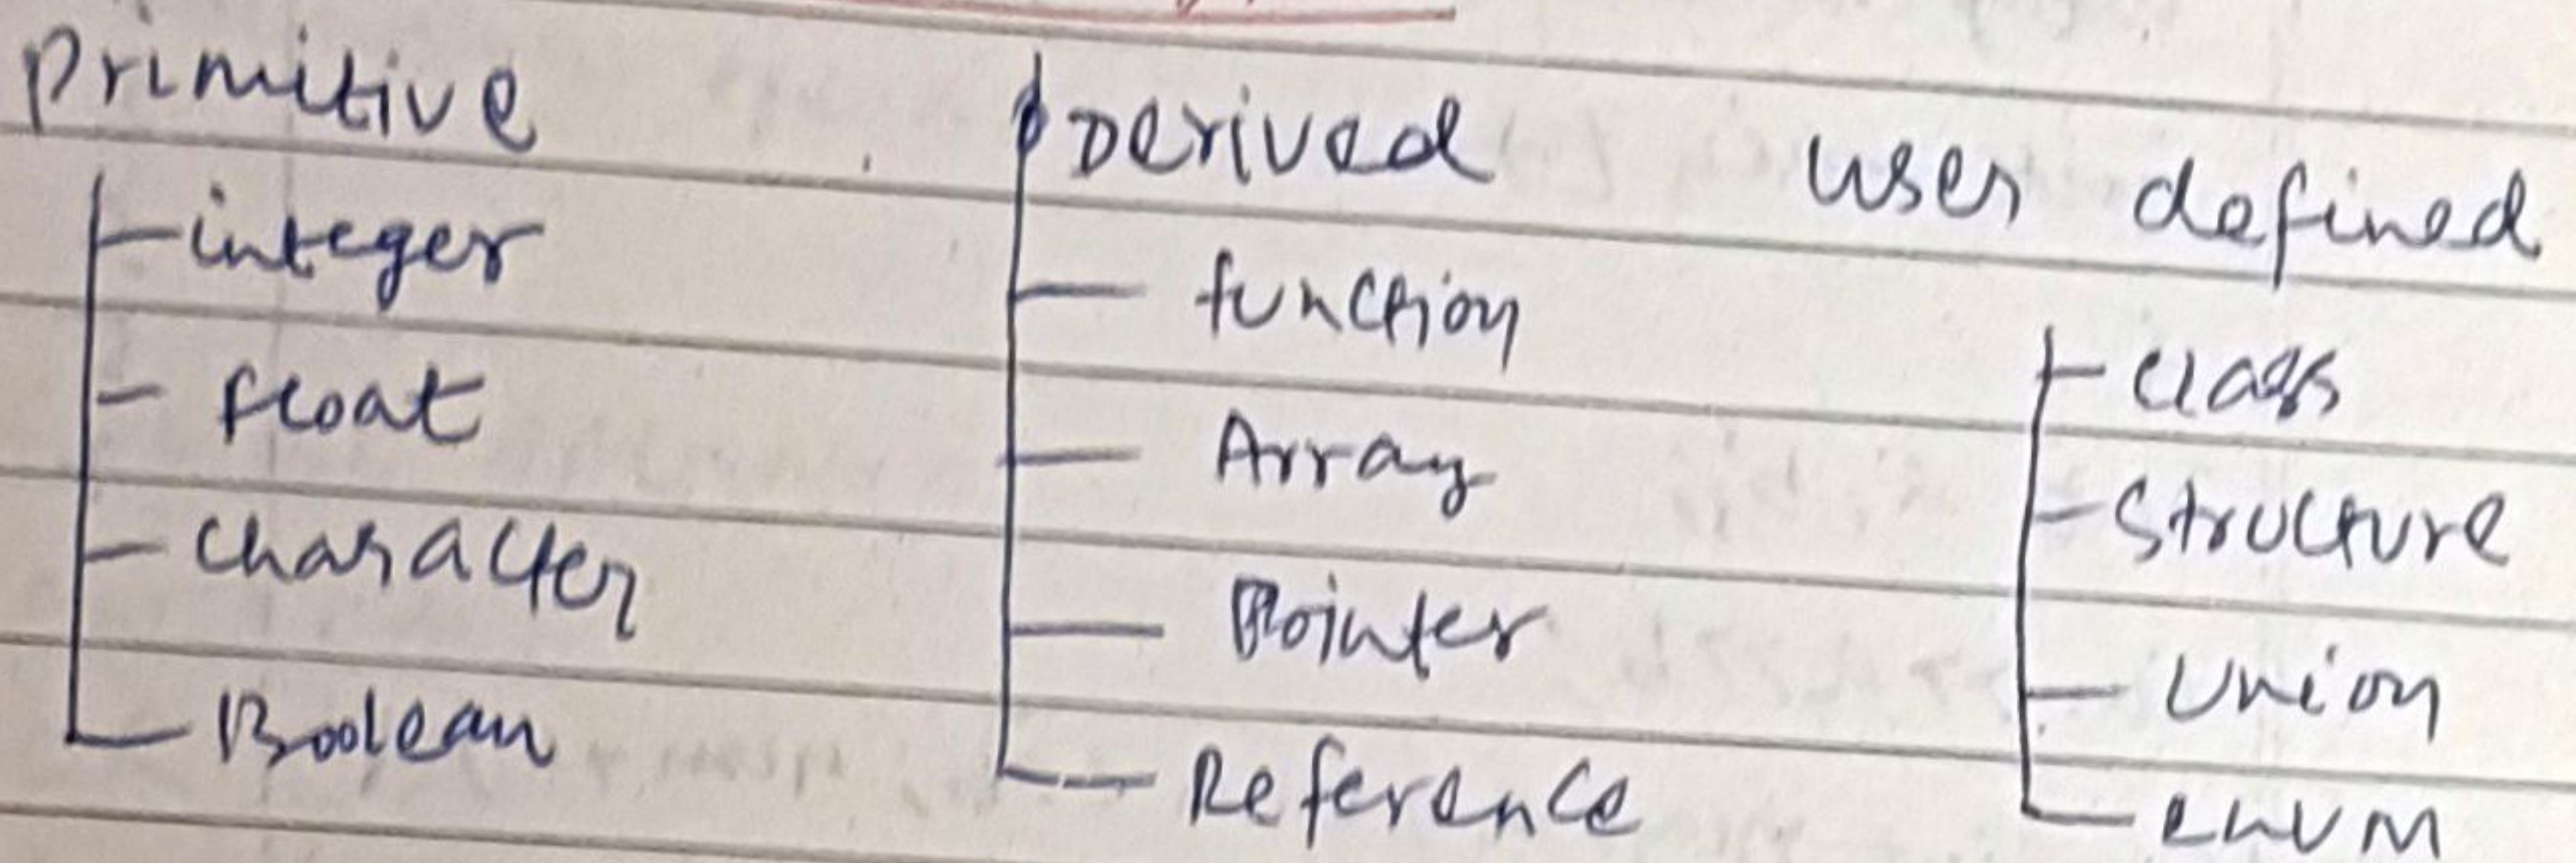 Primitive
integer
float
character
Boolean
Derived
function
Array
Pointer
Reference
user defined
class
Structure
Union
enum